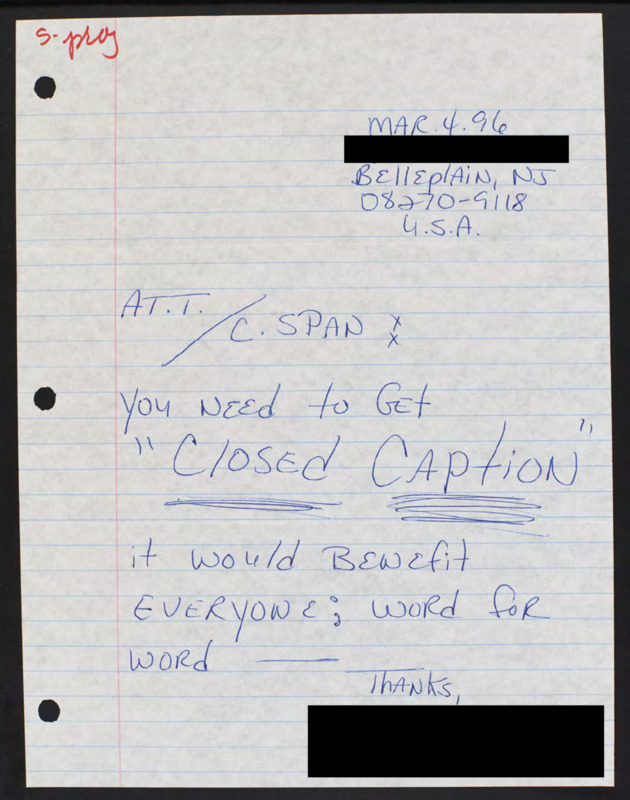 S-prog
MAR. 4. 96
BEllEplAiN, NJ
08270-9118
U.S.A.
AT.T. / C. SPAN
YOU NEEd to GEt
"ClOSEd CAPtiON"
it would BENEfit
EVERYONE; WORd fOR
WORd —
THANKS,